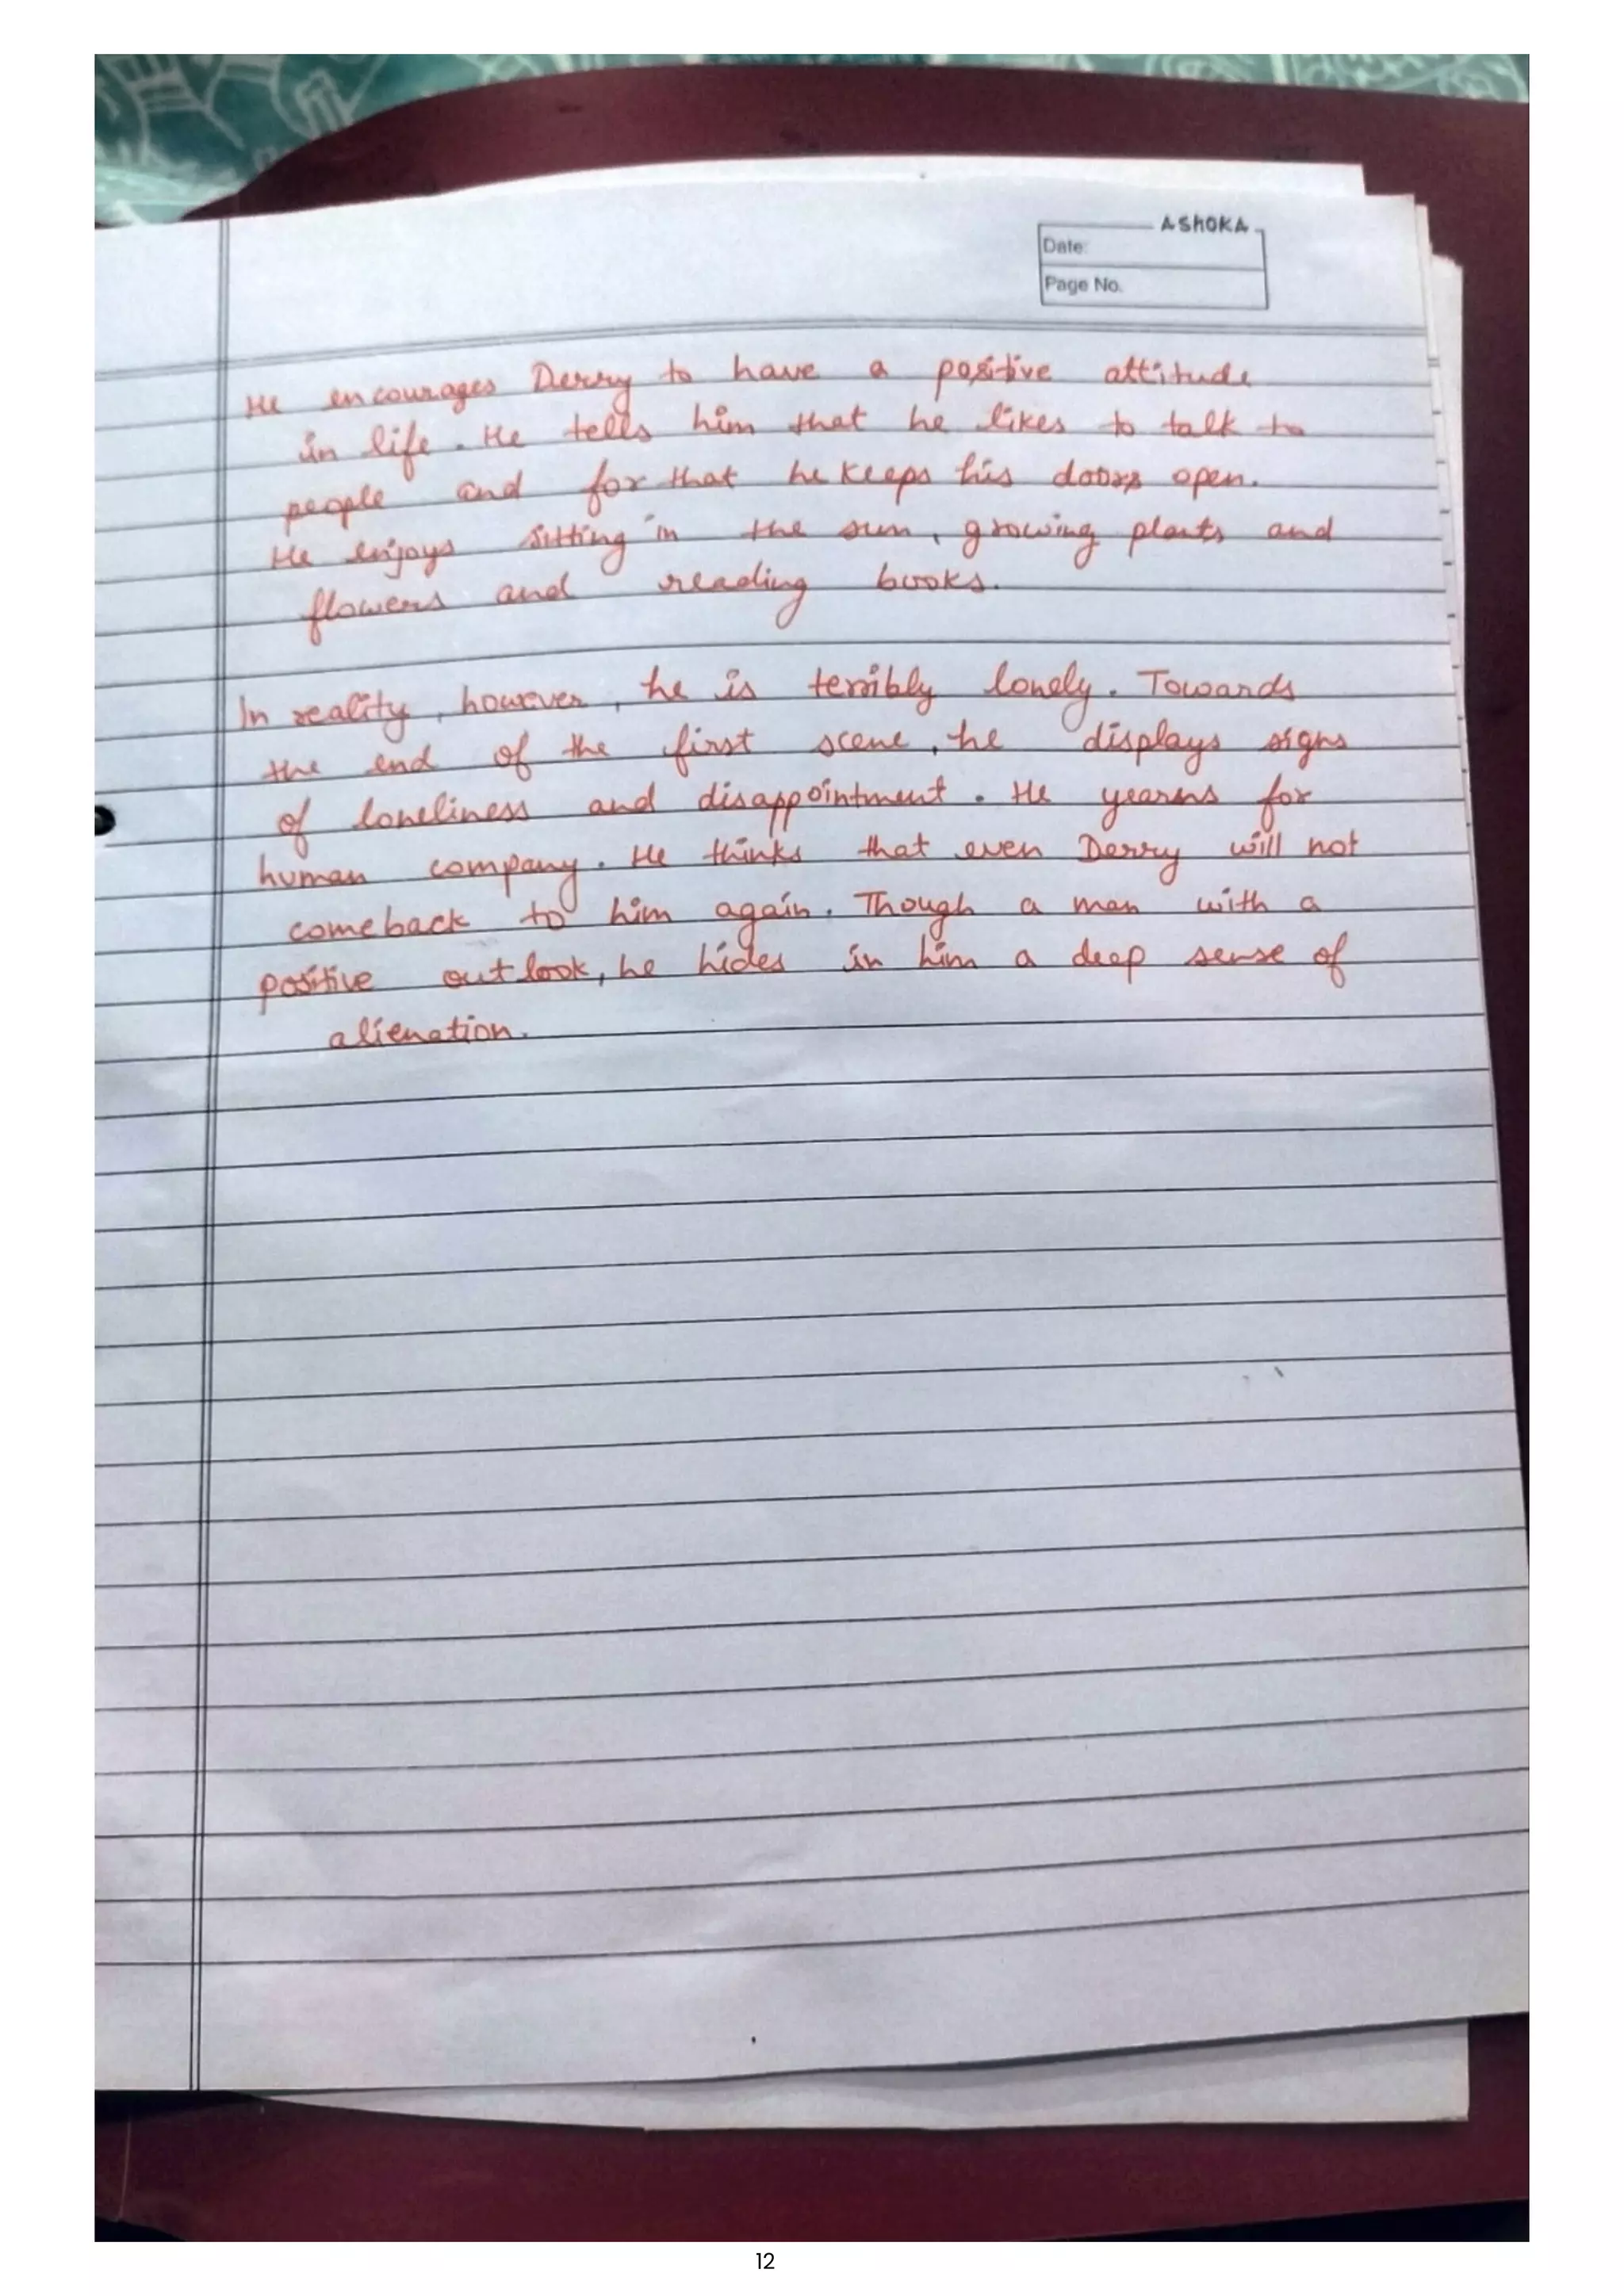 ASHOKA
Date:
Page No.
He encourages Derry to have a positive attitude
in life. He tells him that he likes to talk to
people and for that he keeps his doors open.
He enjoys sitting in the sun, growing plants and
flowers and reading books.
In reality, however, he is terribly lonely. Towards
the end of the first scene, he displays signs
of loneliness and disappointment. He yearns for
human company. He thinks that even Derry will not
come back to him again. Though a man with a
positive outlook, he hides in him a deep sense of
alienation.
12